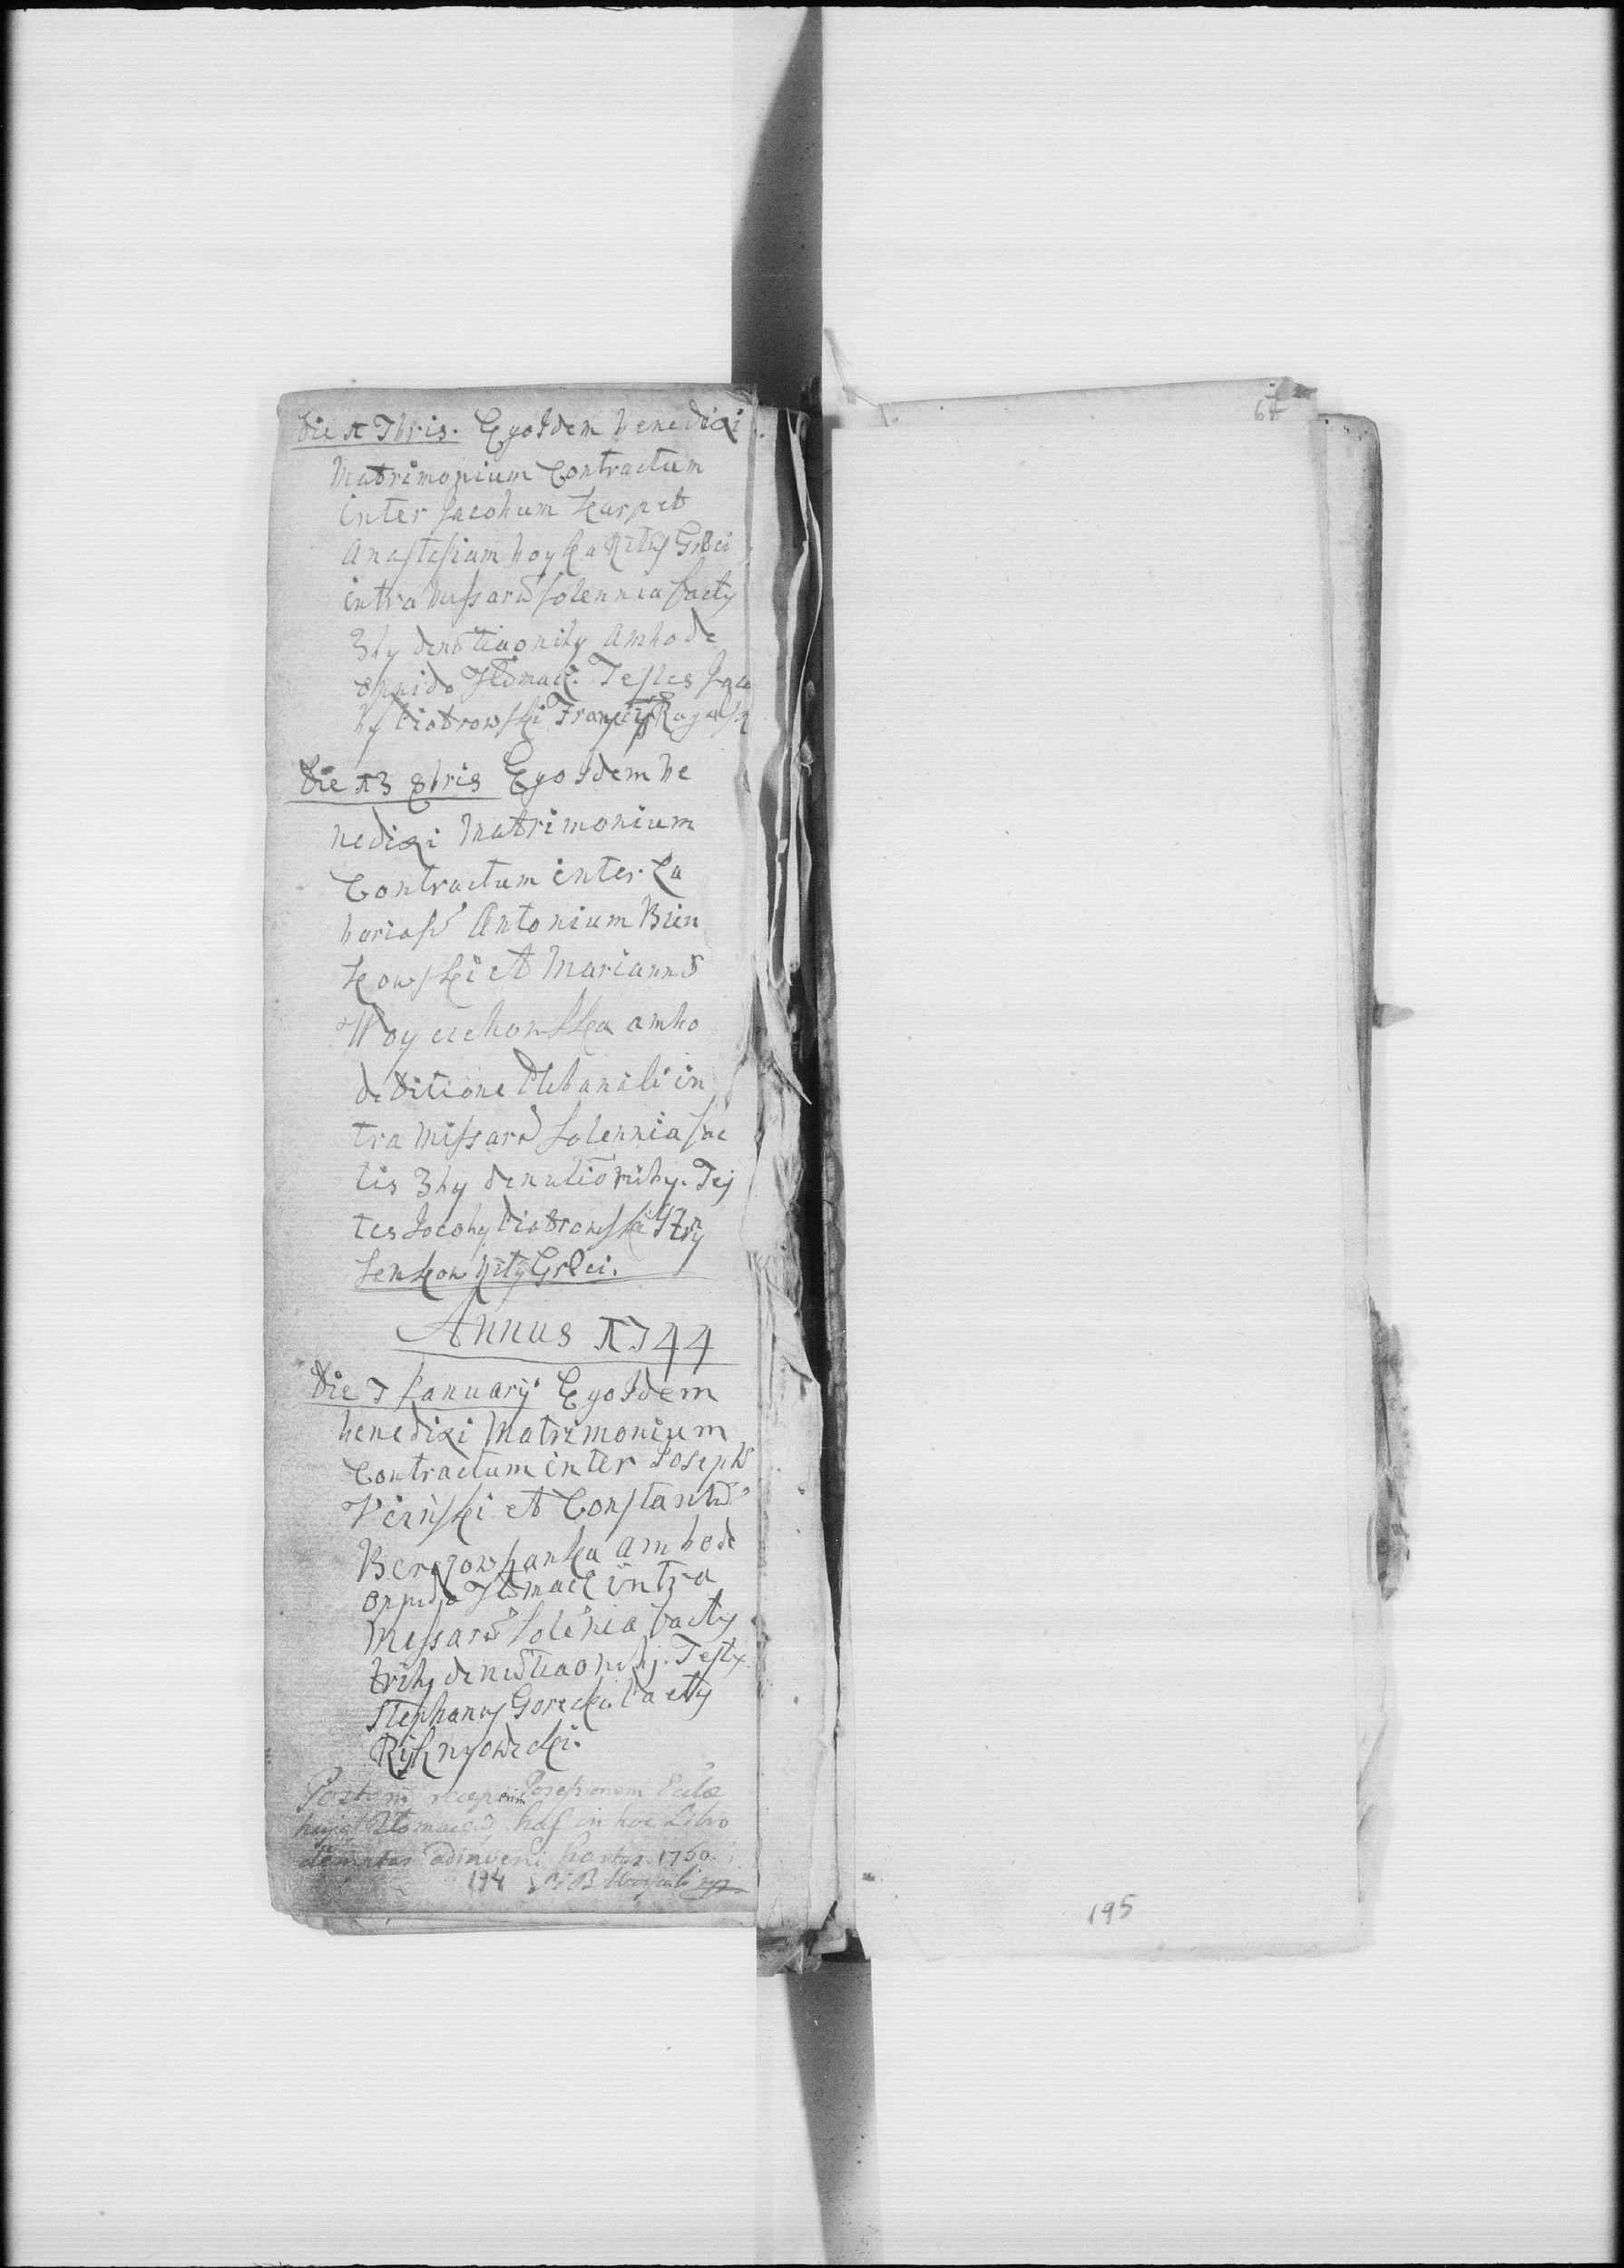 Die 1 7bris. Ego Idem benedixi
Matrimonium Contractum
inter Jacobum Karp et
Anastasiam boyka Ritus Graeci
intra Missarū solennia factis
3by denūtiaonibus Ambo de
oppido Tłomač. Testes Jaco
by Piotrowski Francis Rogalsk
Die 13 8bris Ego Idem be
nedixi Matrimonium
Contractum inter La
boriosū Antonium Bien
kowski et Mariannā
Woyciechowska ambo
de ditione Plebanali in
tra Missarū Solennia fac
tis 3by denutiōnibus. Tes
tes Jacoby Piotrowski
Senkow Ritus Graeci.
Annus 1744
Die 7 January Ego Idem
benedixi Matrimonium
Contractum inter Josephū
et Constantiā
ambo de
oppido Tłomacz intra
Missarū Solēnia factis
tribus denūtiaonibus. Testes
Stephanus Gorecki.
Postqm Possessionem Ecclae
hujus Tłomaczū has in hoc Libro
demptas adinveni Cartas. 1760.
194
64
195